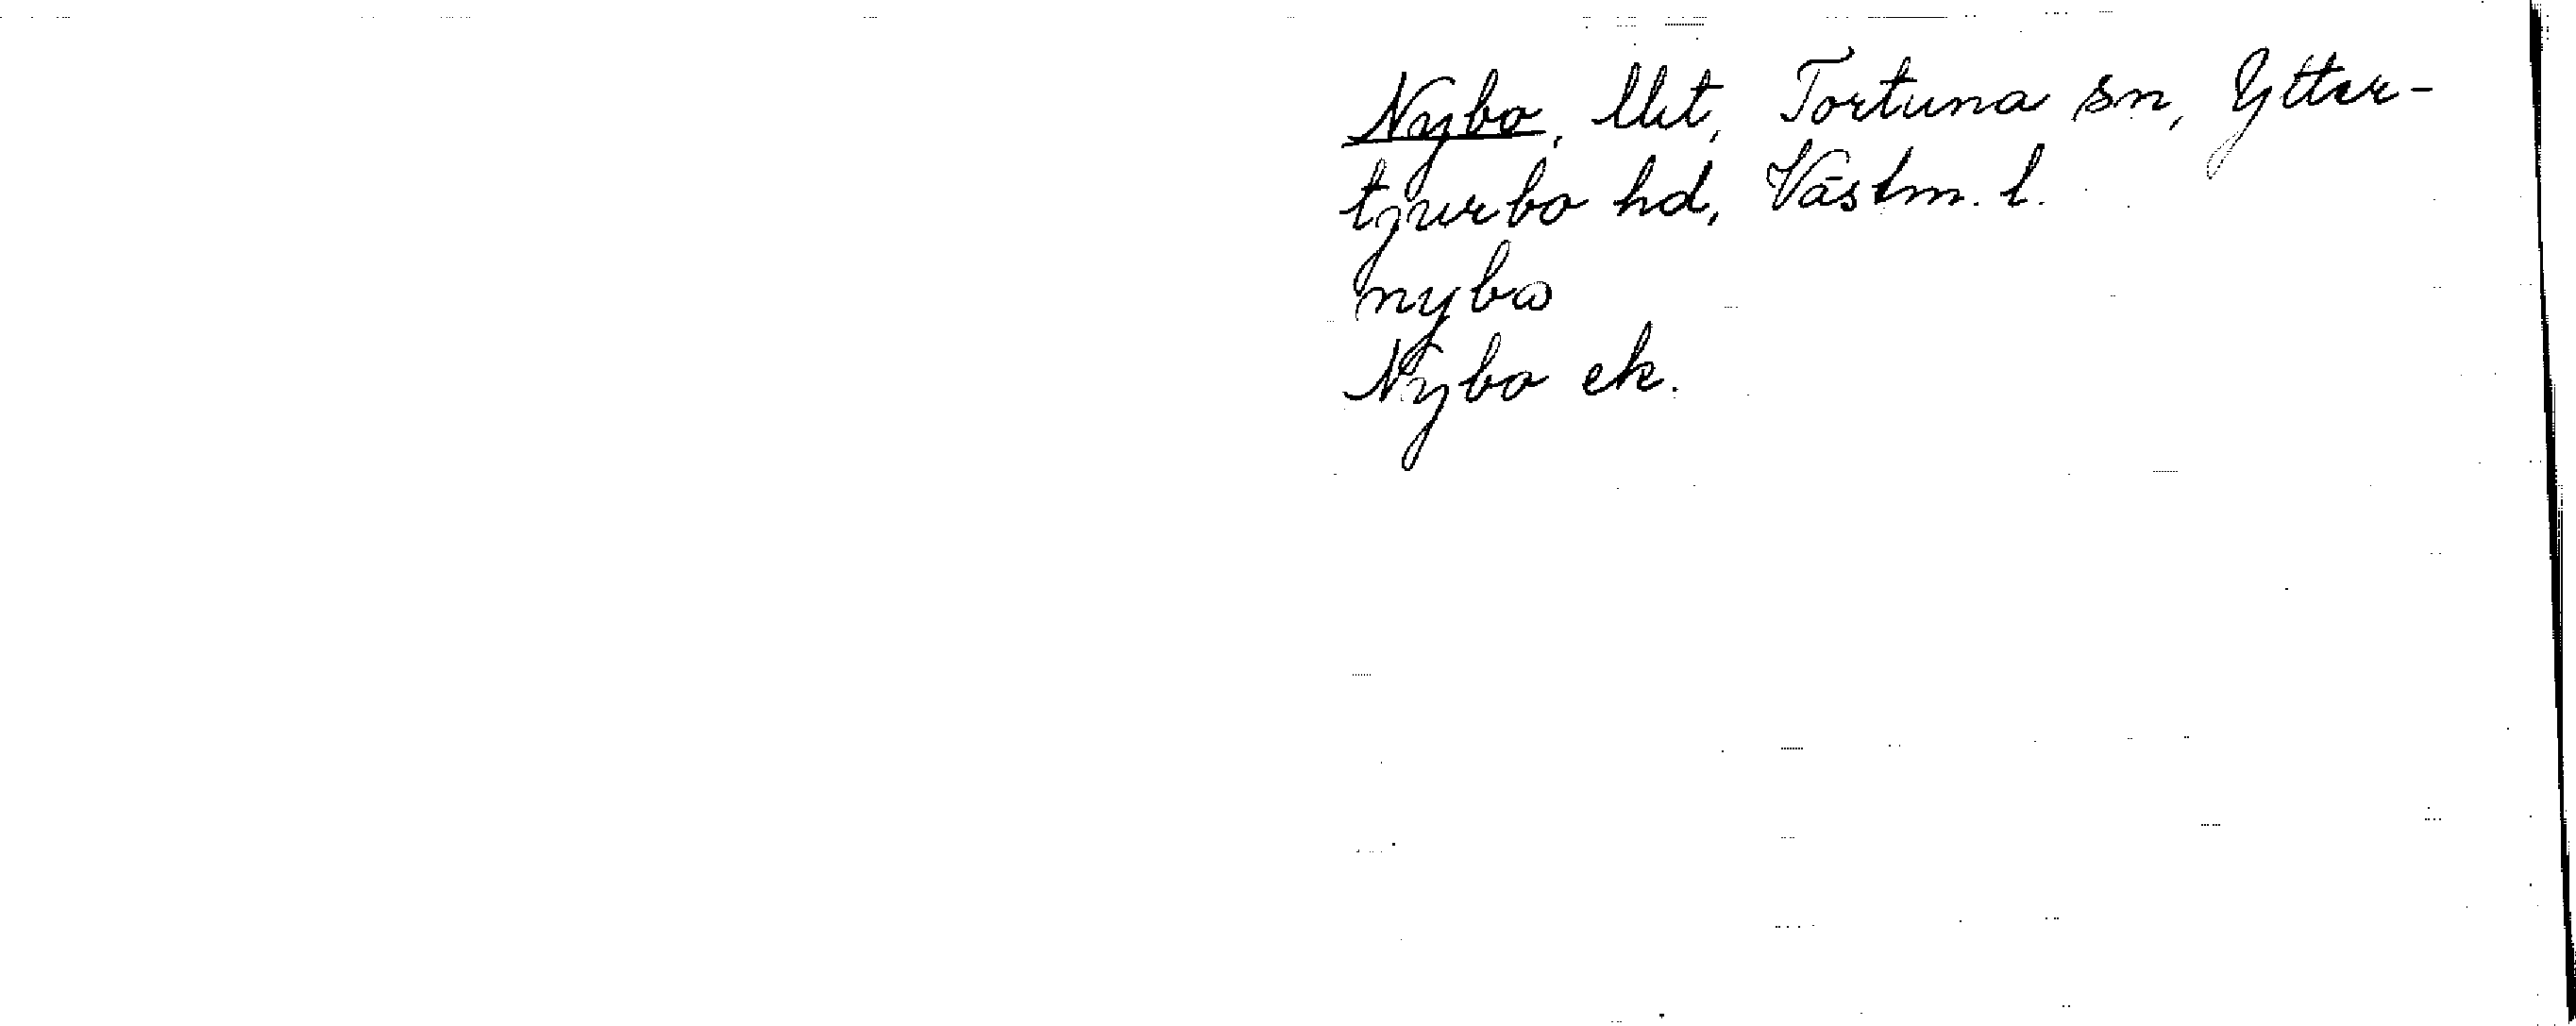 Nybo, lht, Tortuna sn, Ytter-
tjurbo hd, Västm. l.
nybo
Nybo ek.